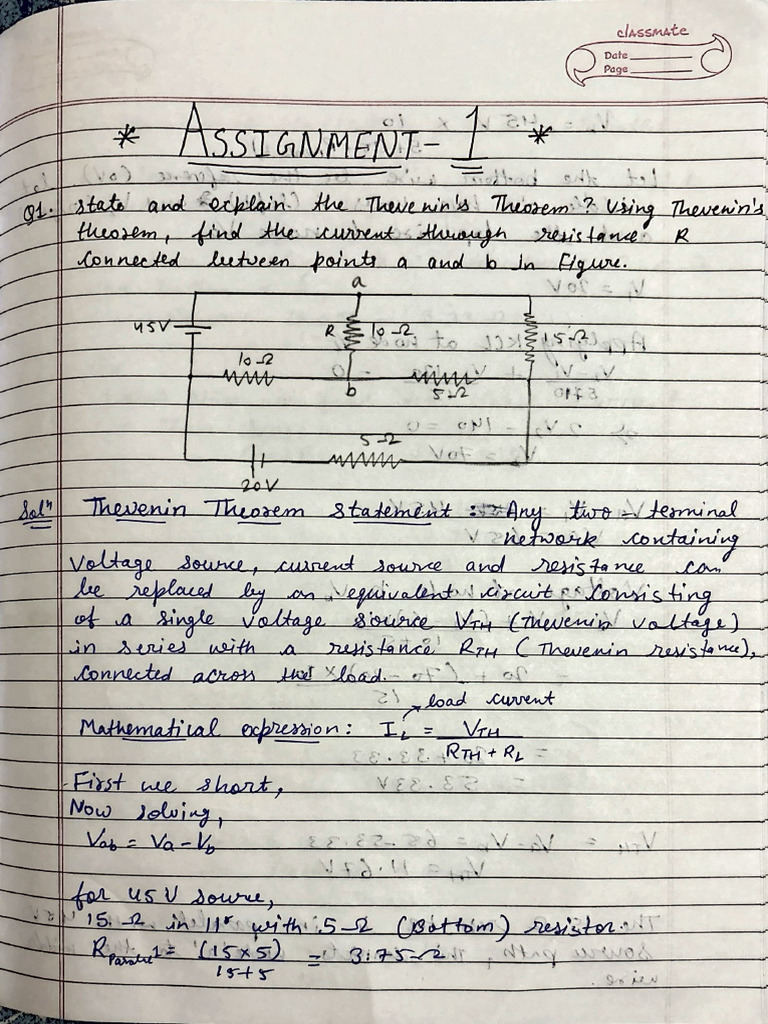 classmate
Date
Page
* ASSIGNMENT - 1 *
Q1. State and explain the Thevenin's Theorem? Using Thevenin's
theorem, find the current through resistance R
connected between points a and b in Figure.
a
45V
R 10Ω
15Ω
10Ω
b
5Ω
5Ω
20V
Solⁿ Thevenin Theorem Statement : Any two = terminal
network containing
voltage source, current source and resistance can
be replaced by an equivalent circuit consisting
of a single voltage source VTH (Thevenin voltage)
in series with a resistance RTH (Thevenin resistance),
connected across the load.
load current
Mathematical expression: IL = VTH
RTH + RL
First we short,
Now solving,
Vab = Va - Vb
for 45 V source,
15 Ω in 11r with 5Ω (Bottom) resistor.
RParallel 1 = (15 x 5) = 3.75 Ω
15+5